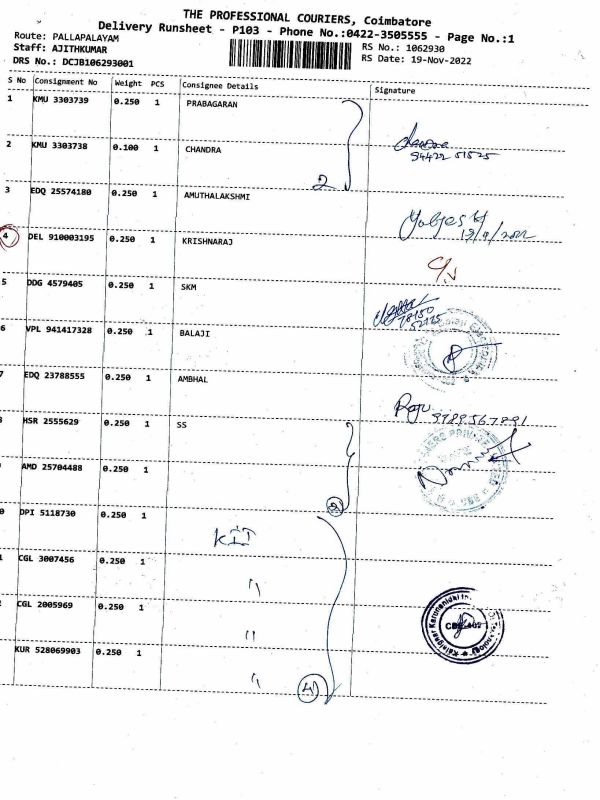 THE PROFESSIONAL COURIERS, Coimbatore
Delivery Runsheet - P103 - Phone No.:0422-3505555 - Page No.:1
Route: PALLAPALAYAM
RS No.: 1062930
Staff: AJITHKUMAR
RS Date: 19-Nov-2022
DRS No.: DCJB106293001
S No Consignment No Weight PCS Consignee Details Signature
1 KMU 3303739 0.250 1 PRABAGARAN
2 KMU 3303738 0.100 1 CHANDRA
94422 51525
2
3 EDQ 25574180 0.250 1 AMUTHALAKSHMI
4 DEL 910003195 0.250 1 KRISHNARAJ
5 DDG 4579405 0.250 1 SKM
6 VPL 941417328 0.250 1 BALAJI
7 EDQ 23788555 0.250 1 AMBHAL
Raju 9789567891
HSR 2555629 0.250 1 SS
AMD 25704488 0.250 1
0 DPI 5118730 0.250 1 KIT
1 CGL 3007456 0.250 1 "
CGL 2005969 0.250 1 "
KUR 528069903 0.250 1 " 4